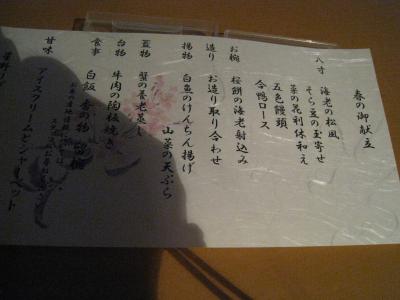 春の御献立
八寸 海老の松風
そら豆の玉寄せ
菜の花利休和え
五色饅頭
合鴨ロース
お椀 桜餅の海老射込み
造り お造り取り合わせ
揚物 白魚のけんちん揚げ
山菜の天ぷら
蓋物 蟹の養老蒸し
台物 牛肉の陶板焼き
食事 白飯 香の物
甘味 アイスクリーム シャーベット